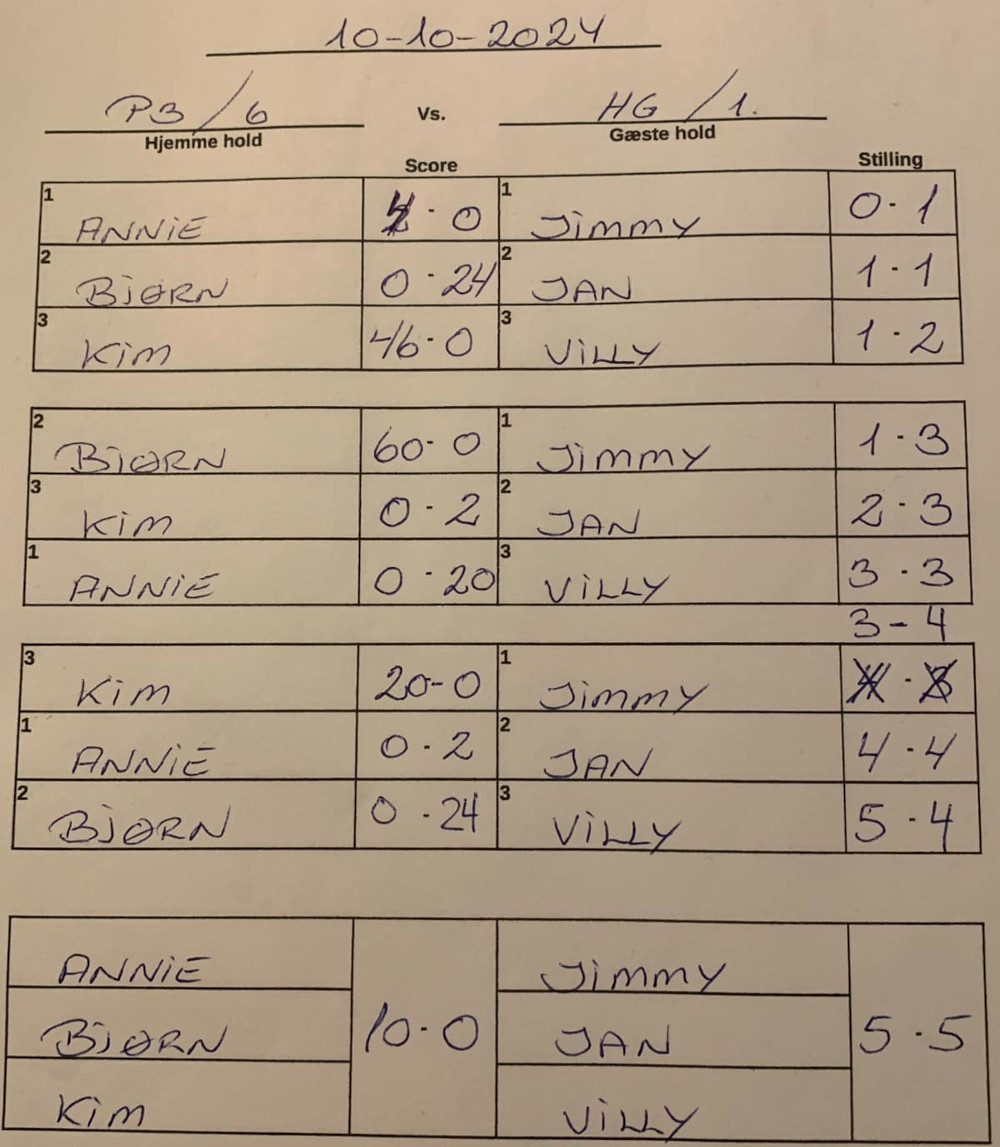 10-10-2024
PB / 6 Vs. HG / 1.
Hjemme hold Gæste hold
Score Stilling
1 ANNiE - 0 1 Jimmy 0 - 1
2 BjØRN 0 - 24 2 JAN 1 - 1
3 Kim 46 - 0 3 ViLLY 1 - 2
2 BjØRN 60 - 0 1 Jimmy 1 - 3
3 Kim 0 - 2 2 JAN 2 - 3
1 ANNiE 0 - 20 3 ViLLY 3 - 3
3 - 4
3 Kim 20 - 0 1 Jimmy
1 ANNiE 0 - 2 2 JAN 4 - 4
2 BjØRN 0 - 24 3 ViLLY 5 - 4
ANNiE Jimmy
BjØRN 10 - 0 JAN 5 - 5
Kim ViLLY